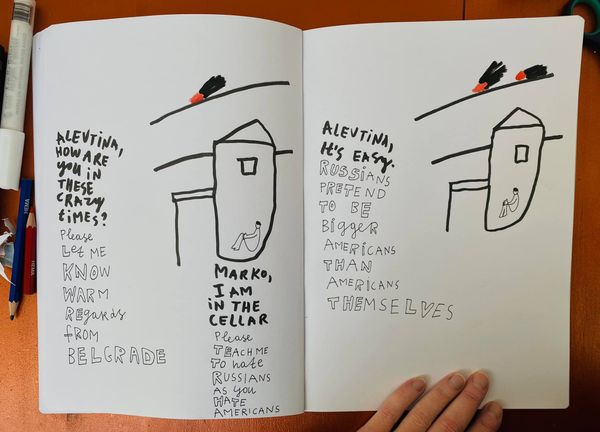 ALEVTINA,
HOW ARE
YOU IN
THESE
CRAZY
TIMES?
Please
Let ME
KNOW
WARM
REgARdS
fROM
BELGRADE
MARKO,
I AM
IN THE
CELLAR
Please
TEACH ME
TO HATE
RUSSIANS
AS YOU
HATE
AMERICANS
ALEVTINA,
IT'S EASY.
RUSSIANS
PRETEND
TO BE
BIGGER
AMERICANS
THAN
AMERICANS
THEMSELVES